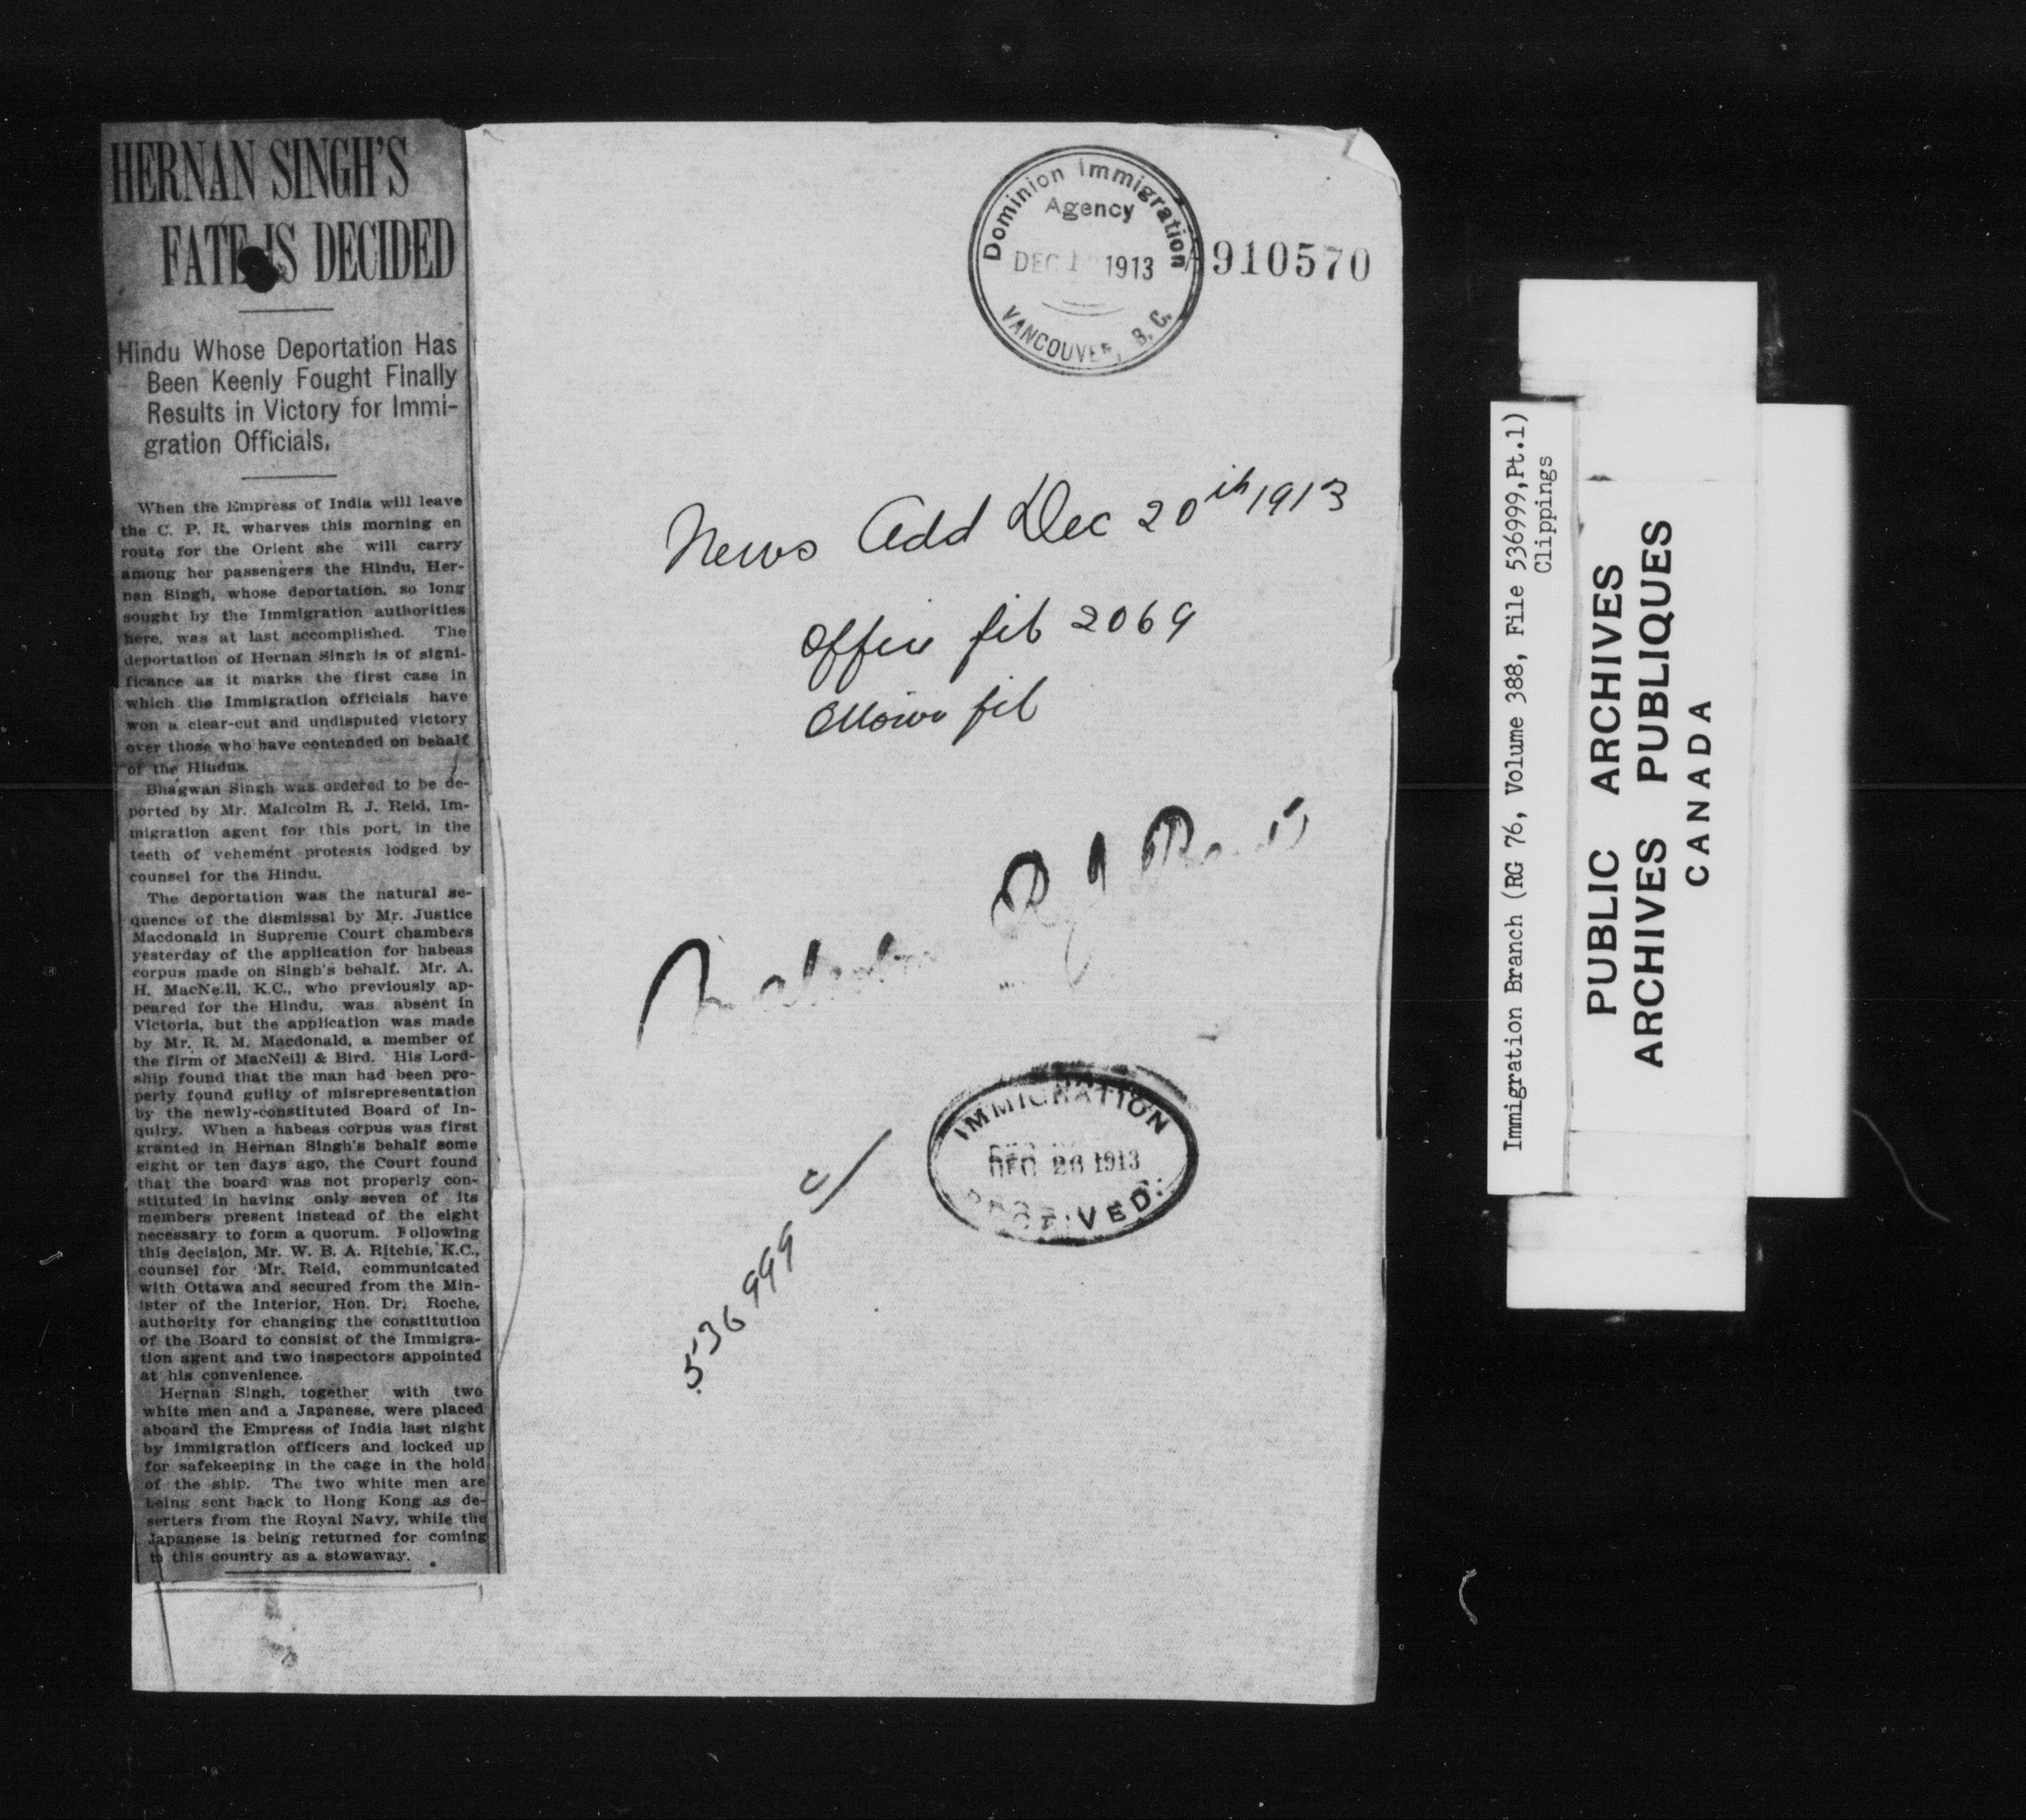 HERNAN SINGH'S
FATE IS DECIDED
Hindu Whose Deportation Has
Been Keenly Fought Finally
Results in Victory for Immi-
gration Officials.
When the Empress of India will leave
the C. P. R. wharves this morning en
route for the Orient she will carry
among her passengers the Hindu, Her-
nan Singh, whose deportation, so long
sought by the Immigration authorities
here, was at last accomplished. The
deportation of Hernan Singh is of signi-
ficance as it marks the first case in
which the Immigration officials have
won a clear-cut and undisputed victory
over those who have contended on behalf
of the Hindus.
Bhagwan Singh was ordered to be de-
ported by Mr. Malcolm R. J. Reid, Im-
migration agent for this port, in the
teeth of vehement protests lodged by
counsel for the Hindu.
The deportation was the natural se-
quence of the dismissal by Mr. Justice
Macdonald in Supreme Court chambers
yesterday of the application for habeas
corpus made on Singh's behalf. Mr. A.
H. MacNeill, K.C., who previously ap-
peared for the Hindu, was absent in
Victoria, but the application was made
by Mr. R. M. Macdonald, a member of
the firm of MacNeill & Bird. His Lord-
ship found that the man had been pro-
perly found guilty of misrepresentation
by the newly-constituted Board of In-
quiry. When a habeas corpus was first
granted in Hernan Singh's behalf some
eight or ten days ago, the Court found
that the board was not properly con-
stituted in having only seven of its
members present instead of the eight
necessary to form a quorum. Following
this decision, Mr. W. B. A. Ritchie, K.C.,
counsel for Mr. Reid, communicated
with Ottawa and secured from the Min-
ister of the Interior, Hon. Dr. Roche,
authority for changing the constitution
of the Board to consist of the Immigra-
tion agent and two inspectors appointed
at his convenience.
Hernan Singh, together with two
white men and a Japanese, were placed
aboard the Empress of India last night
by immigration officers and locked up
for safekeeping in the cage in the hold
of the ship. The two white men are
being sent back to Hong Kong as de-
serters from the Royal Navy, while the
Japanese is being returned for coming
to this country as a stowaway.
Dominion Immigration
Agency
DEC 1913
VANCOUVER, B. C.
910570
News Add Dec 20th 1913
Office file 2069
Ottawa file
Malcolm R J Reid
IMMIGRATION
DEC 26 1913
RECEIVED.
536999
Immigration Branch (RG 76, Volume 388, File 536999,Pt.1)
Clippings
PUBLIC ARCHIVES
ARCHIVES PUBLIQUES
CANADA